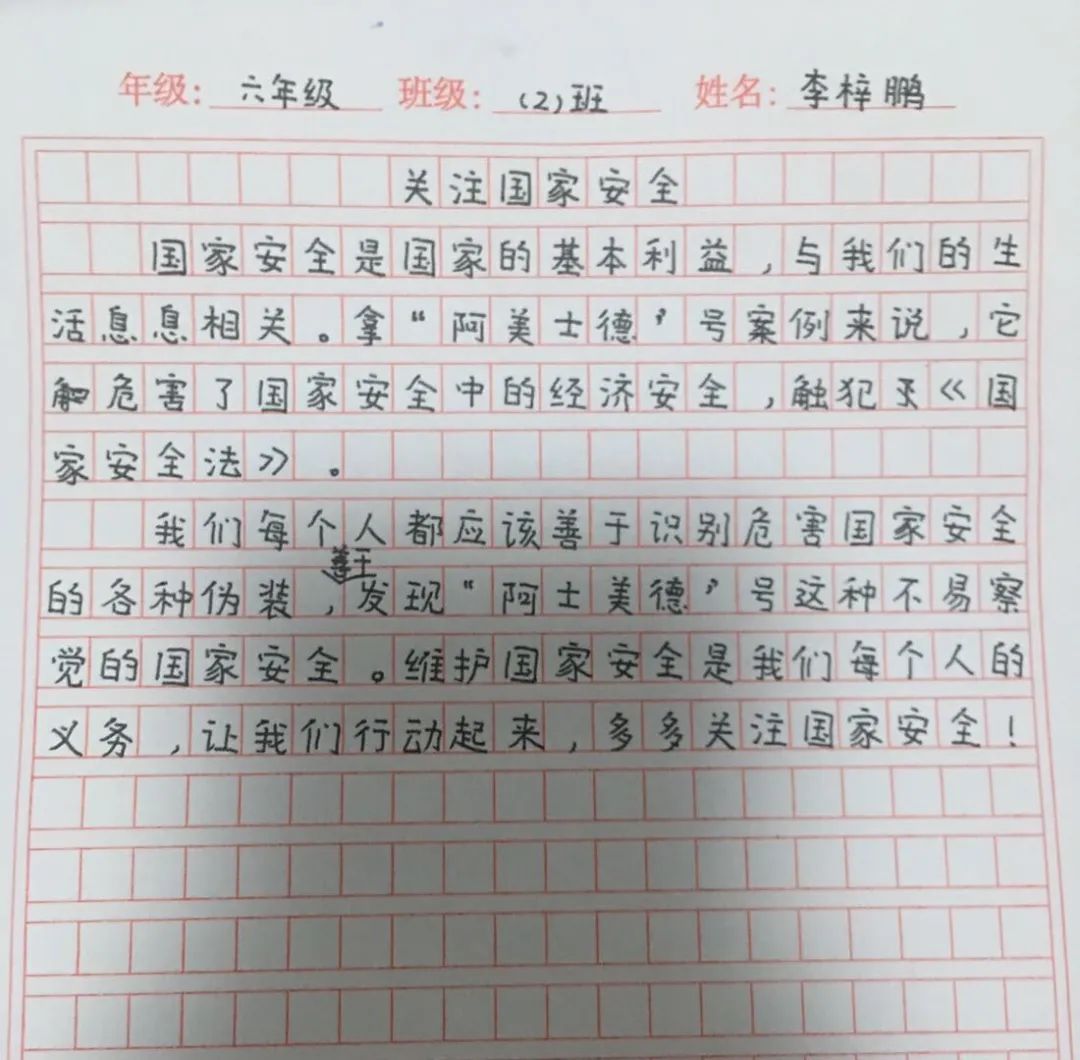 年级: 六年级 班级: (2)班 姓名: 李梓鹏
关注国家安全
国家安全是国家的基本利益,与我们的生
活息息相关。拿“阿美士德”号案例来说,它
危害了国家安全中的经济安全,触犯了《国
家安全法》。
我们每个人都应该善于识别危害国家安全
的各种伪装,善于发现“阿士美德”号这种不易察
觉的国家安全。维护国家安全是我们每个人的
义务,让我们行动起来,多多关注国家安全!